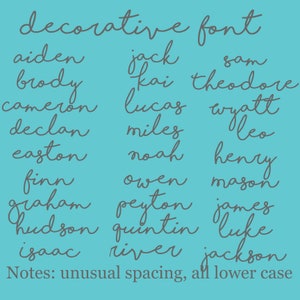 decorative font
aiden jack sam
brody kai theodore
cameron lucas wyatt
declan miles leo
easton noah henry
finn owen mason
graham peyton james
hudson quintin luke
isaac river jackson
Notes: unusual spacing, all lower case